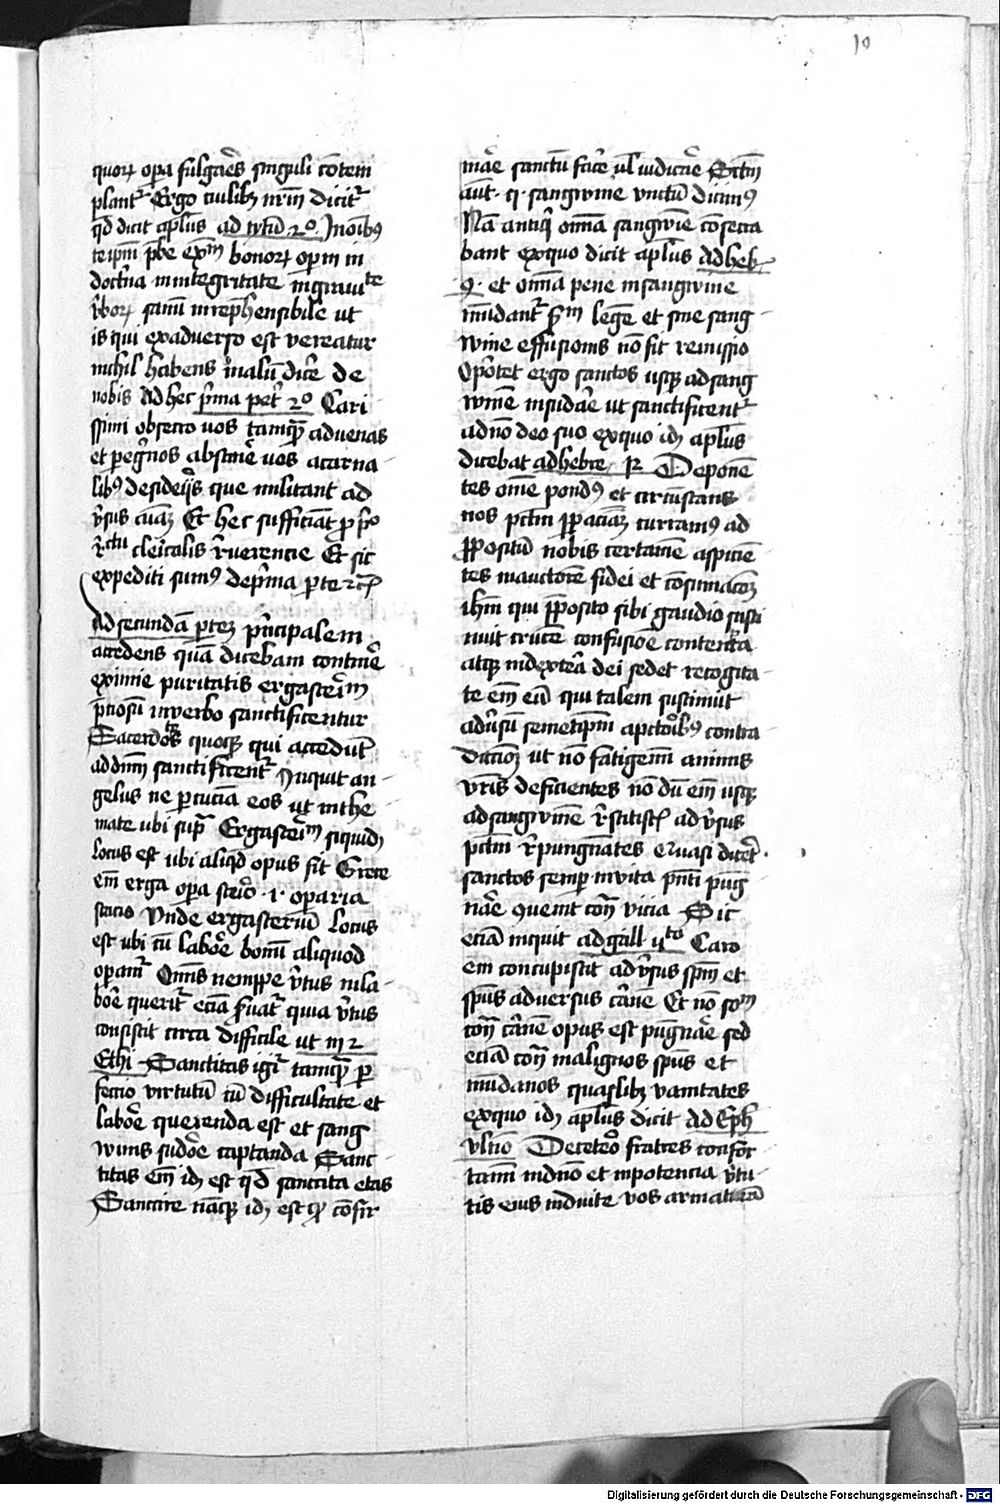 10
quoꝝ oꝑa fulgaēs singuli cōtem
plantᷣ Ergo tuilibꝫ nrm̄ dicitᷣ
qd̄ dicit apl̄us ad tytū 2º Inoib9
teipm̄ p̄be exm̄ bonoꝝ oꝑm in
doct̄na inintegritate ingrauite
v̄boꝝ sanū inrep̄hensibile ut
is qui exaduerso est vereatur
nichil habens malū dic̄e de
nobis Ad hec p̄ma pet̄ 2º Cari
ssimi obsecro uos tamqꝫ aduenas
et peg̓nos abstine̓ uos acarna
lib9 desideijs que militant ad
v̄sus aīaꝫ Et hec sufficiāt ꝓ
cleīcalis r̄uerencie Et sic
expediti sum9 dep̄ma ꝑte
Ad secundā ꝑteꝫ p̄ncipalem
accedens quā dicebam contine̓
eximie puritatis ergastēim
p̄ciosū inverbo sanctificentur
Sacerdotes quoqꝫ qui accedūt
addm̄ sanctificentᷣ Inquit an
gelus ne ꝑcuciā eos ut inthe
mate ubi sup̄ Ergastēim siquidē
locus est ubi aliqd̄ opus fit Grece
em̄ erga oꝑa steīo .i. oꝑaria
stacio Unde ergasteriū locus
est ubi cū labo̓e bonū aliquod
oꝑatᷣ Om̄is nempe v̄tus inla
bo̓e queritᷣ eciā s̄uatᷣ quia v̄tus
consistit circa difficile ut in 2
Ethi Sanctitas igiᷣ tamqꝫ ꝑ
fectio virtutū cū difficultate et
labo̓e querenda est et sang
winis sudo̓e captanda Sanc
titas em̄ idē est qd̄ sanccita etas
Sanccire nāqꝫ idē est qd̄ cōfir
ma̓e sanctū face̓ ul̄ iudica̓e
aūt .q. sangwine unctū dicim9
Nā antiqͥ omīa sangwīe cōsecra
bant exquo dicit apl̄us Adheb
9. et omīa pene insangwine
mūdantᷣ s̄m legē et sine sang
wine effusionis nō fit remissio
Oportet ergo sanctos usqꝫ adsang
winē insuda̓e ut sanctificentᷣ
adnō deo suo exquo idē apl̄us
dicebat adhebre 12 Deponē
tes omē pond9 et circūstans
nos pctm̄ ꝑ paciāꝫ curram9 ad
ꝓpositū nobis certamē aspiciē
tes inauctorē fidei et cōsumacoꝫ
ihm̄ qui ꝓposito sibi gaudio susti
nuit crucē confusioē contempta
atqꝫ indextēa dei sedet recogita
te em̄ eū qui talem sustinuit
adūsū semetipm̄ apctoīb9 contra
diccioꝫ ut nō fatigemī animis
vris̄ deficientes nō dū em̄ usqꝫ
adsangwinē r̄stitistꝭ adūsus
pctm̄ r̄pungnātes Quasi dicet̓
sanctos semper invita p̄nti pug
na̓e ꝯuenit cōt̄ vicia Sic
eciā inquit adgall qͥto Caro
em̄ concupiscit adūsus spm̄ et
spūs aduersus carnē Et nō som̄
cōt̄ carnē opus est pugna̓e sed
eciā cōt̄ malignos spūs et
mūdanos quaslibꝫ vanitates
exquo idē apl̄us dicit Ad Eph
ultīo Deceteo̓ fratres confor
tamī indno et inpotencia v̄tu
tis eius induite vos armaturā
Digitalisierung gefördert durch die Deutsche Forschungsgemeinschaft - DFG